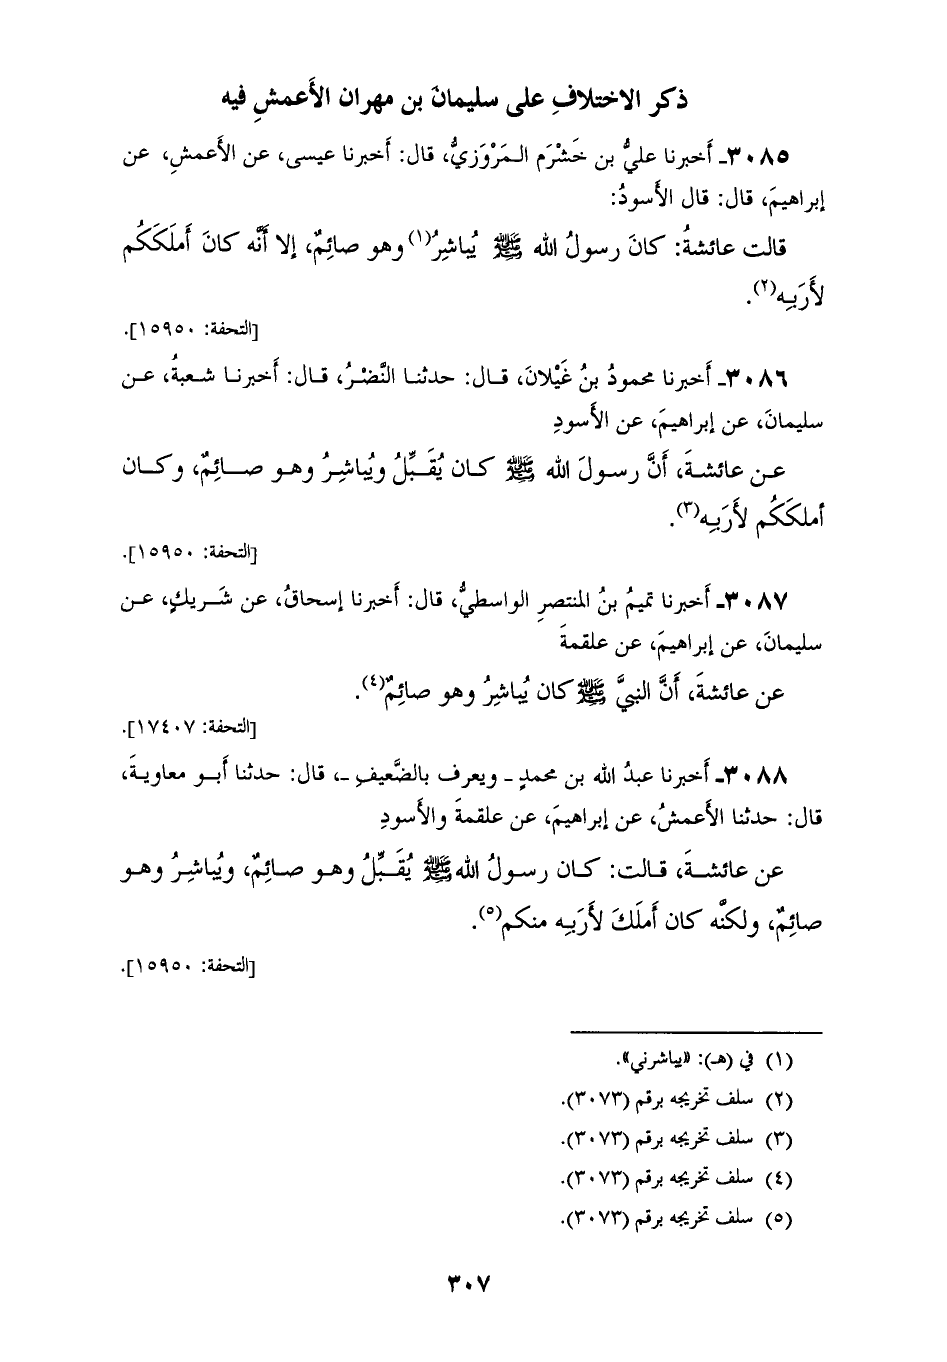 ذكر الاختلافِ على سليمانَ بن مهران الأَعمشِ فيه
٣٠٨٥ـ أَخبرنا عليُّ بن خَشْرَم المَرْوَزيُّ، قال: أَخبرنا عيسى، عن الأَعمشِ، عن
إبراهيمَ، قال: قال الأَسودُ:
قالت عائشةُ: كانَ رسولُ الله ﷺ يُباشِرُ(١) وهو صائِمٌ، إلا أَنَّه كانَ أَملَكَكُم
لأَرَبِه(٢).
[التحفة: ١٥٩٥٠].
٣٠٨٦ـ أَخبرنا محمودُ بنُ غَيْلانَ، قال: حدثنا النَّضْرُ، قال: أَخبرنا شعبةُ، عن
سليمانَ، عن إبراهيمَ، عن الأَسودِ
عن عائشةَ، أَنَّ رسولَ الله ﷺ كان يُقَبِّلُ ويُباشِرُ وهو صائِمٌ، وكان
أملكَكُم لأَرَبِه(٣).
[التحفة: ١٥٩٥٠].
٣٠٨٧ـ أَخبرنا تميمُ بنُ المنتصرِ الواسطيُّ، قال: أَخبرنا إسحاقُ، عن شَريكٍ، عن
سليمانَ، عن إبراهيمَ، عن علقمةَ
عن عائشةَ، أَنَّ النبيَّ ﷺ كان يُباشِرُ وهو صائِمٌ(٤).
[التحفة: ١٧٤٠٧].
٣٠٨٨ـ أَخبرنا عبدُ الله بن محمدٍ ـ ويعرف بالضَّعيفِ ـ، قال: حدثنا أَبو معاويةَ،
قال: حدثنا الأَعمشُ، عن إبراهيمَ، عن علقمةَ والأَسودِ
عن عائشةَ، قالت: كان رسولُ الله ﷺ يُقَبِّلُ وهو صائِمٌ، ويُباشِرُ وهو
صائِمٌ، ولكنَّه كان أَملَكَ لأَرَبِه منكم(٥).
[التحفة: ١٥٩٥٠].
(١) في (هـ): «يباشرني».
(٢) سلف تخريجه برقم (٣٠٧٣).
(٣) سلف تخريجه برقم (٣٠٧٣).
(٤) سلف تخريجه برقم (٣٠٧٣).
(٥) سلف تخريجه برقم (٣٠٧٣).
٣٠٧